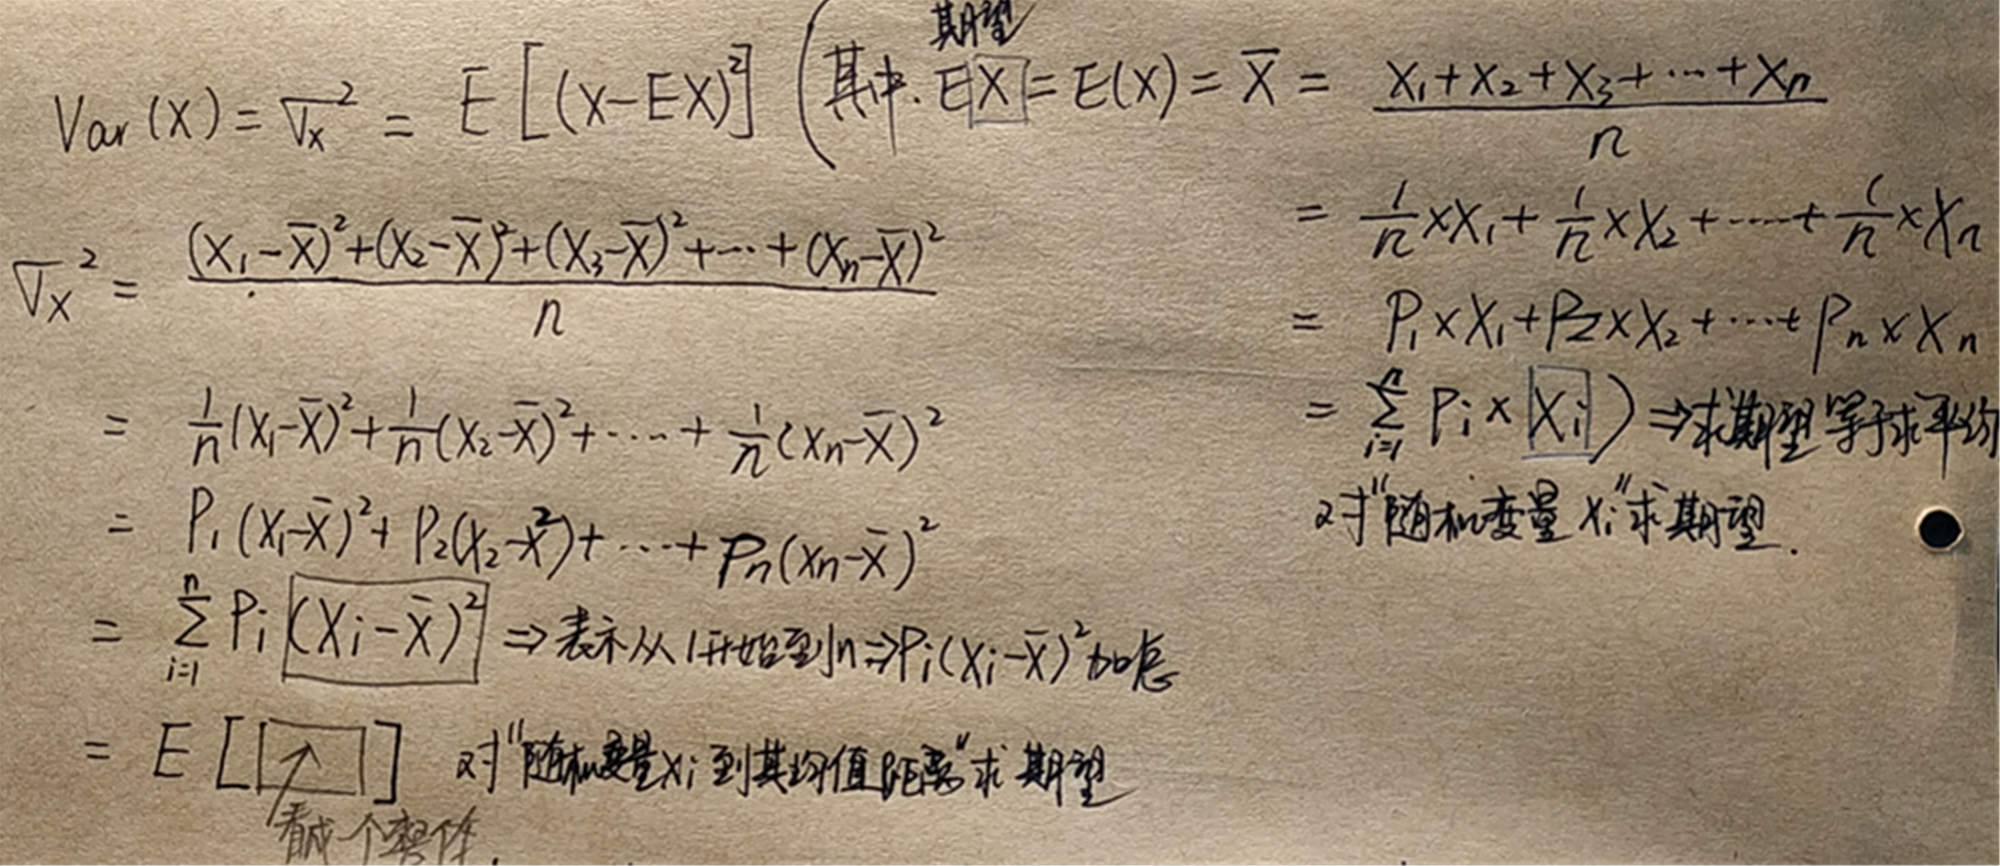 期望
Var(X) = σx² = E[(X-EX)²] (其中. EX = E(X) = X̄ = (X₁+X₂+X₃+…+Xn)/n
= 1/n×X₁ + 1/n×X₂ +……+ 1/n×Xn
= P₁×X₁+P₂×X₂+……+Pn×Xn
= Σ(i=1→n) Pi × Xi) ⇒ 求期望等于求平均
对“随机变量Xi”求期望.
σx² = ((X₁-X̄)²+(X₂-X̄)²+(X₃-X̄)²+…+(Xn-X̄)²)/n
= 1/n(X₁-X̄)²+1/n(X₂-X̄)²+……+1/n(Xn-X̄)²
= P₁(X₁-X̄)²+P₂(X₂-X̄²)+……+Pn(Xn-X̄)²
= Σ(i=1→n) Pi (Xi-X̄)² ⇒ 表示从1开始到n⇒Pi(Xi-X̄)²加总
= E[ ] 对“随机变量Xi到其均值距离”求期望
看成一个整体.